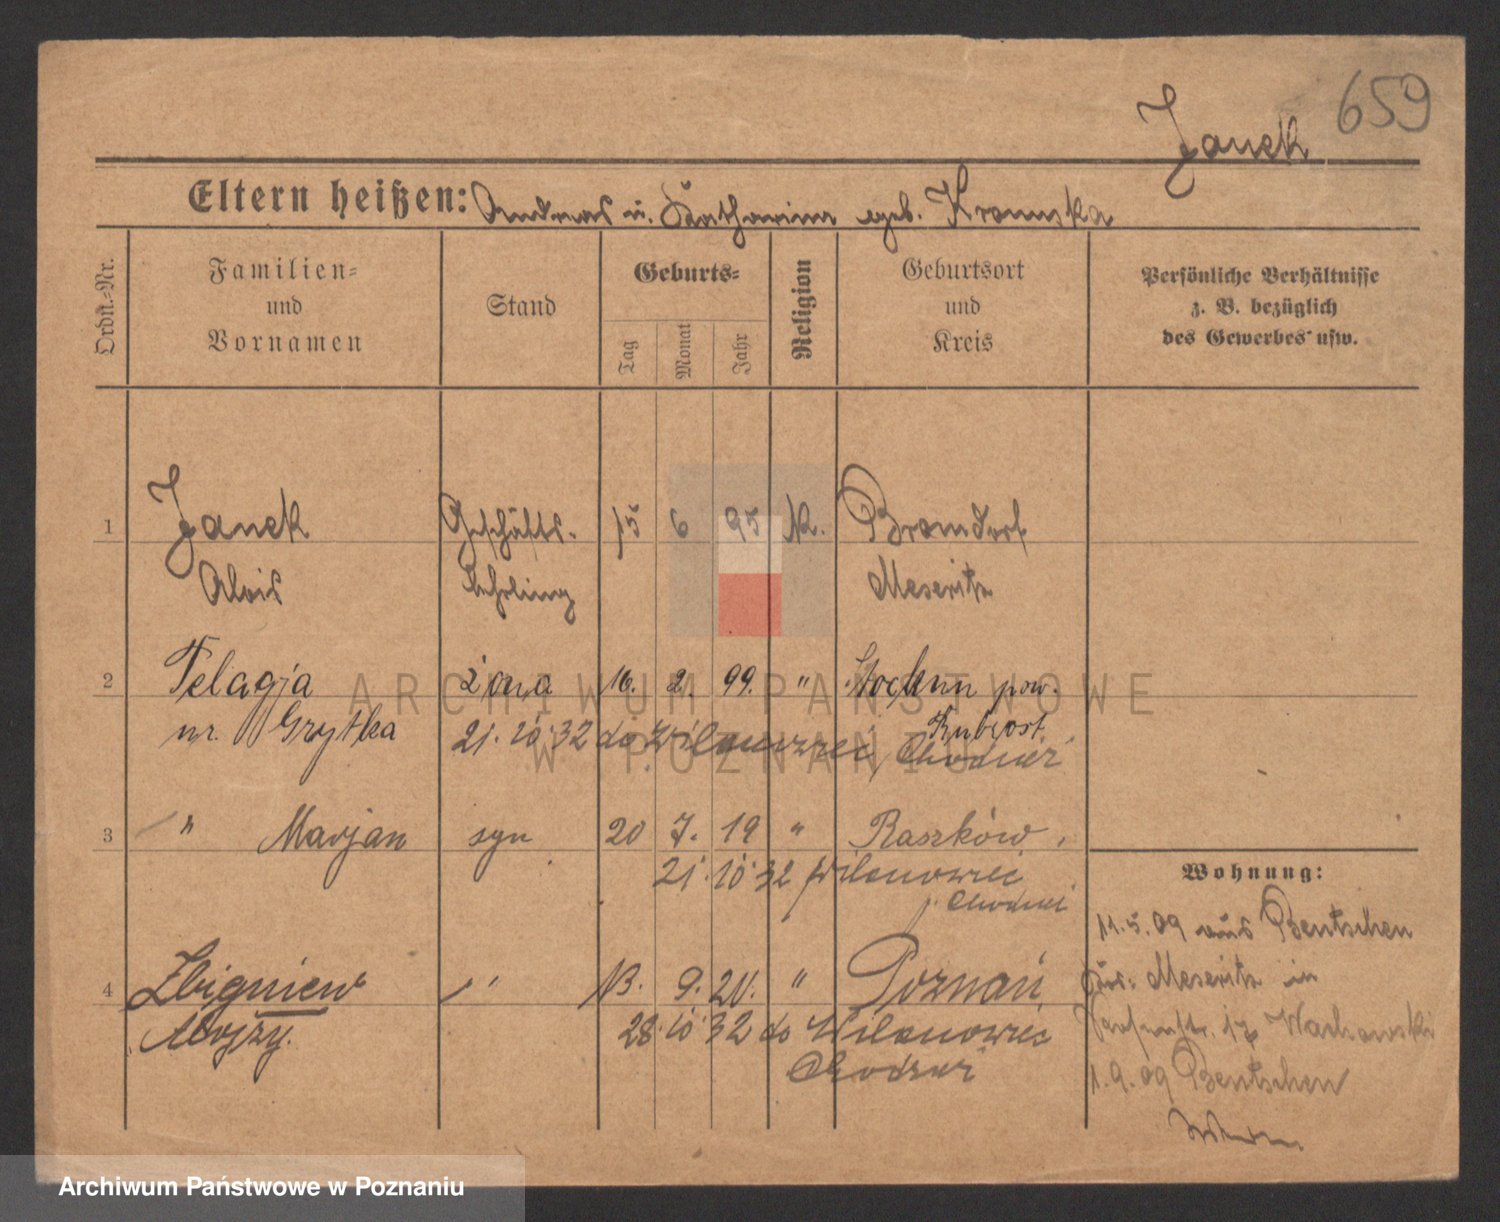 659
Janek
Eltern heißen: Andreas u. Katharina geb. Kromska
Ordn.-Nr.
Familien-
und
Vornamen
Stand
Geburts-
Tag
Monat
Jahr
Religion
Geburtsort
und
Kreis
Persönliche Verhältnisse
z. B. bezüglich
des Gewerbes usw.
1 Janek Geschäfts- 15 6 95 K. Bromdorf
Alois Lehrling Meseritz
2 Pelagja żona 16. 2. 99. "
ur. Grytka
21.10.32 do
3 " Marjan syn 20 7. 19 " Raszków
21.10.32 Wilanowiec
p. Chodzież
4 Zbigniew " 13. 9. 20. " Poznań
Alojzy.
28.10.32 do Wilanowiec
Chodzież
Wohnung:
11.5.09 aus Bentschen
Meseritz in
17 Wachowski
1.9.09 Bentschen
ARCHIWUM PAŃSTWOWE
W POZNANIU
Archiwum Państwowe w Poznaniu